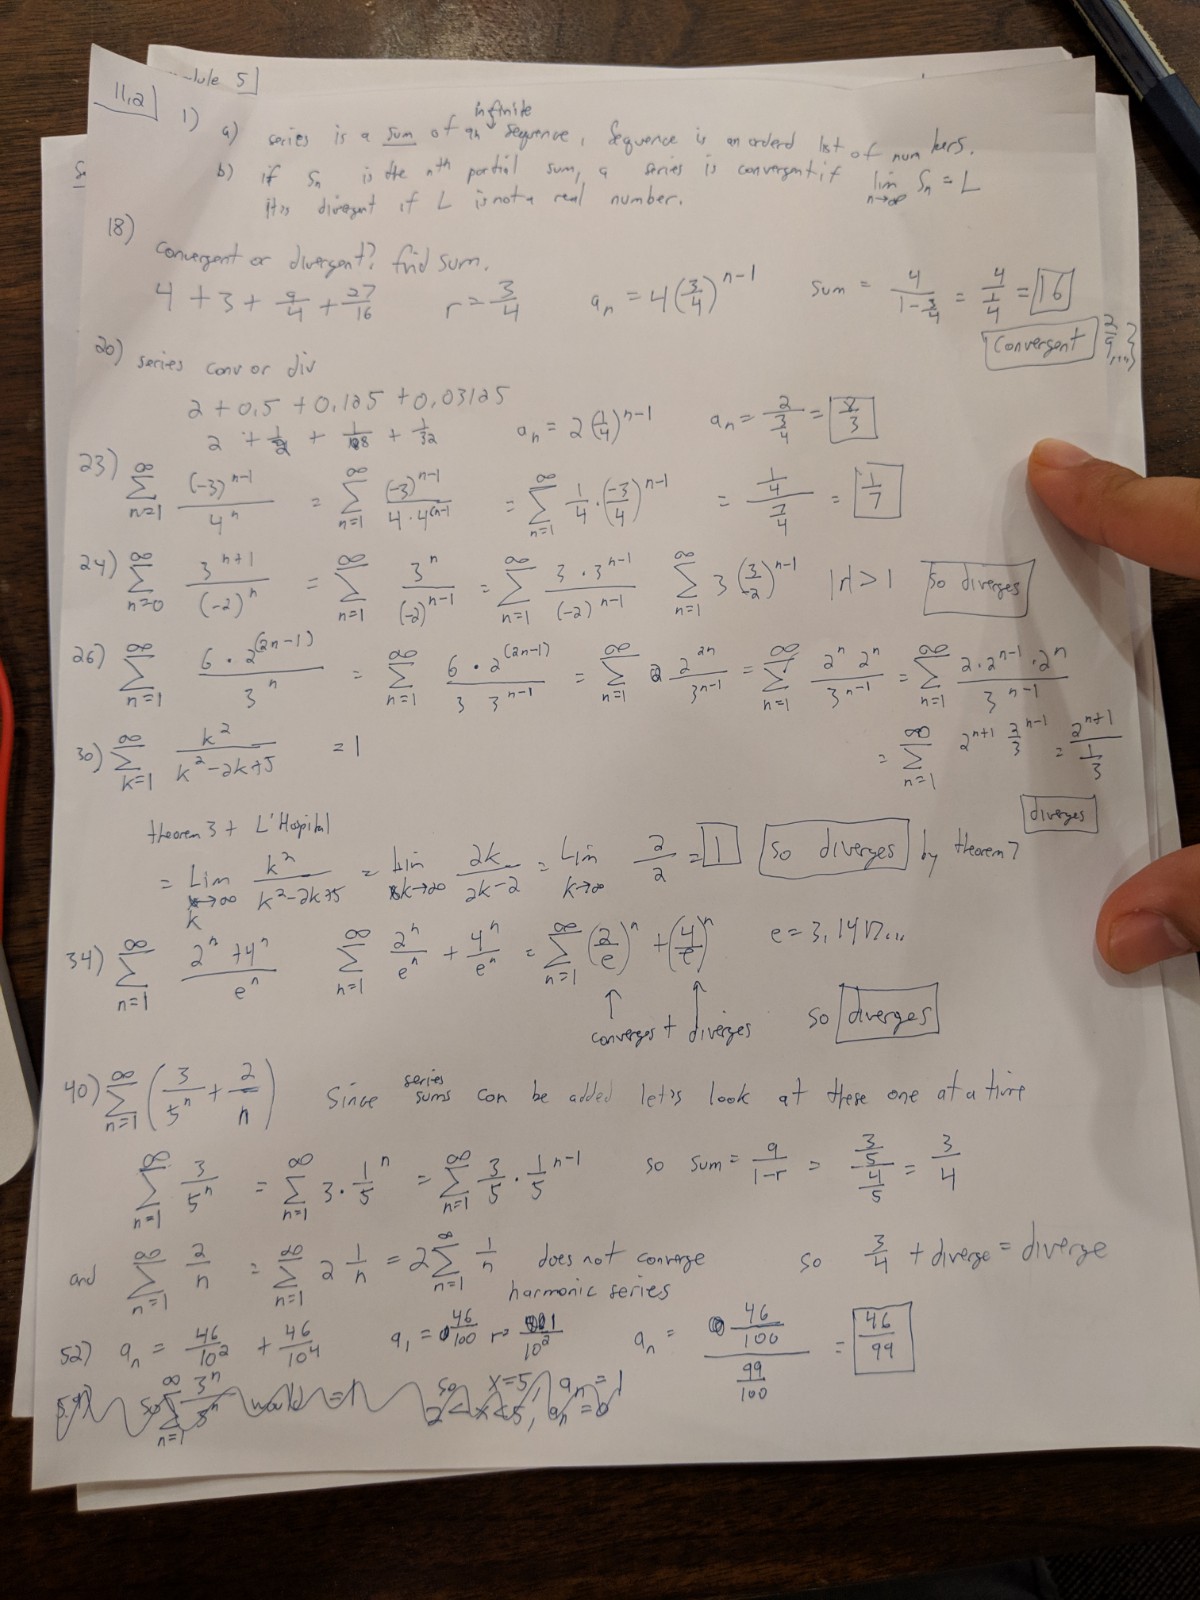 -dule 5
11.2
1) a) series is a sum of an infinite sequence, Sequence is an orderd list of numbers.
b) if Sn is the nth partial sum, a series is convergent if lim n→∞ Sn = L
It is divergent if L is not a real number.
18) convergent or divergent? find sum.
4 + 3 + 9/4 + 27/16 r = 3/4 an = 4(3/4)^(n-1) sum = 4/(1-3/4) = 4/(1/4) = 16
Convergent
20) series conv or div
2 + 0.5 + 0.125 + 0.03125
2 + 1/2 + 1/8 + 1/32 an = 2(1/4)^(n-1) an = 2/(3/4) = 8/3
23) ∑ n=1 ∞ (-3)^(n-1)/4^n = ∑ n=1 ∞ (-3)^(n-1)/(4·4^(n-1)) = ∑ n=1 ∞ 1/4·(-3/4)^(n-1) = (1/4)/(7/4) = 1/7
24) ∑ n=0 ∞ 3^(n+1)/(-2)^n = ∑ n=1 ∞ 3^n/(-2)^(n-1) = ∑ n=1 ∞ 3·3^(n-1)/(-2)^(n-1) ∑ n=1 ∞ 3(3/-2)^(n-1) |r| > 1 so diverges
26) ∑ n=1 ∞ 6·2^(2n-1)/3^n = ∑ n=1 ∞ 6·2^(2n-1)/(3 3^(n-1)) = ∑ n=1 ∞ 2^(2n)/3^(n-1) = ∑ n=1 ∞ 2^n 2^n/3^(n-1) = ∑ n=1 ∞ 2·2^(n-1)·2^n/3^(n-1)
= ∑ n=1 ∞ 2^(n+1) 2/3^(n-1) = 2^(n+1)/(1/3)
diverges
30) ∑ k=1 ∞ k²/(k²-2k+5) = 1
theorem 3 + L'Hospital
= Lim k→∞ k²/(k²-2k+5) = Lim k→∞ 2k/(2k-2) = Lim k→∞ 2/2 = 1 so diverges by theorem 7
34) ∑ n=1 ∞ (2^n+4^n)/e^n ∑ n=1 ∞ 2^n/e^n + 4^n/e^n = ∑ n=1 ∞ (2/e)^n + (4/e)^n e = 3.1417...
↑ ↑
converges + diverges so diverges
40) ∑ n=1 ∞ (3/5^n + 2/n) Since series sums can be added let's look at these one at a time
∑ n=1 ∞ 3/5^n = ∑ n=1 ∞ 3·1/5^n = ∑ n=1 ∞ 3/5·1/5^(n-1) so sum = a/(1-r) = (3/5)/(4/5) = 3/4
and ∑ n=1 ∞ 2/n = ∑ n=1 ∞ 2 1/n = 2∑ n=1 ∞ 1/n does not converge so 3/4 + diverge = diverge
harmonic series
52) an = 46/10² + 46/10⁴ a1 = 46/100 r = 1/10² an = (46/100)/(99/100) = 46/99